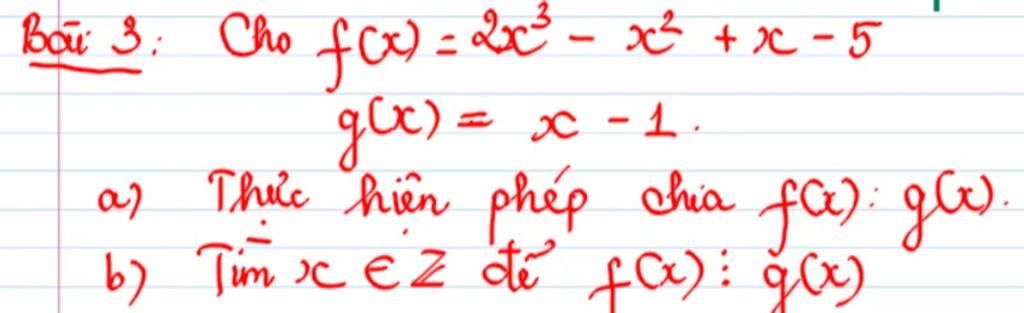 Bài 3: Cho f(x) = 2x³ - x² + x - 5
g(x) = x - 1.
a) Thực hiện phép chia f(x): g(x).
b) Tìm x ∈ Z để f(x) ⋮ g(x)